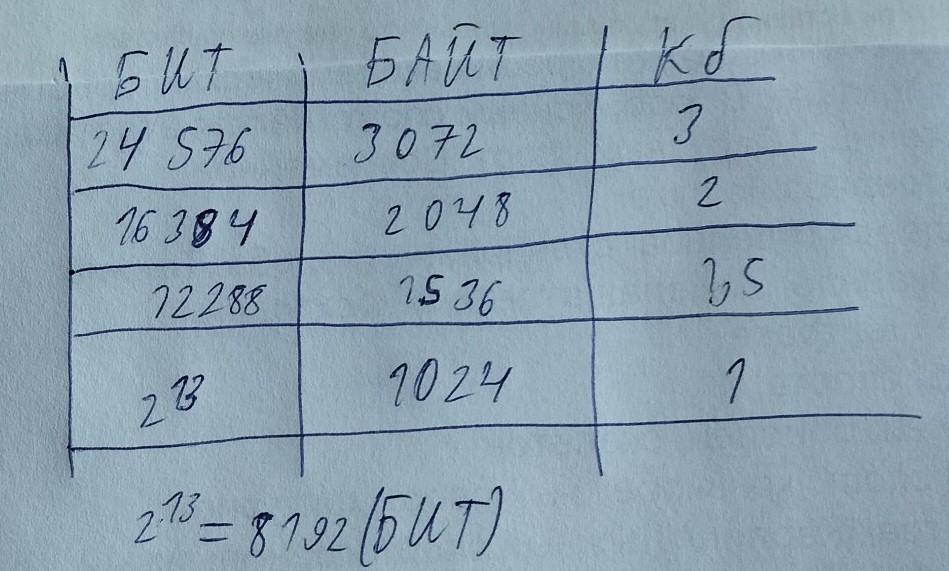 БИТ БАЙТ Кб
24 576 3072 3
16384 2048 2
12288 1536 1,5
2¹³ 1024 1
2¹³ = 8192 (БИТ)